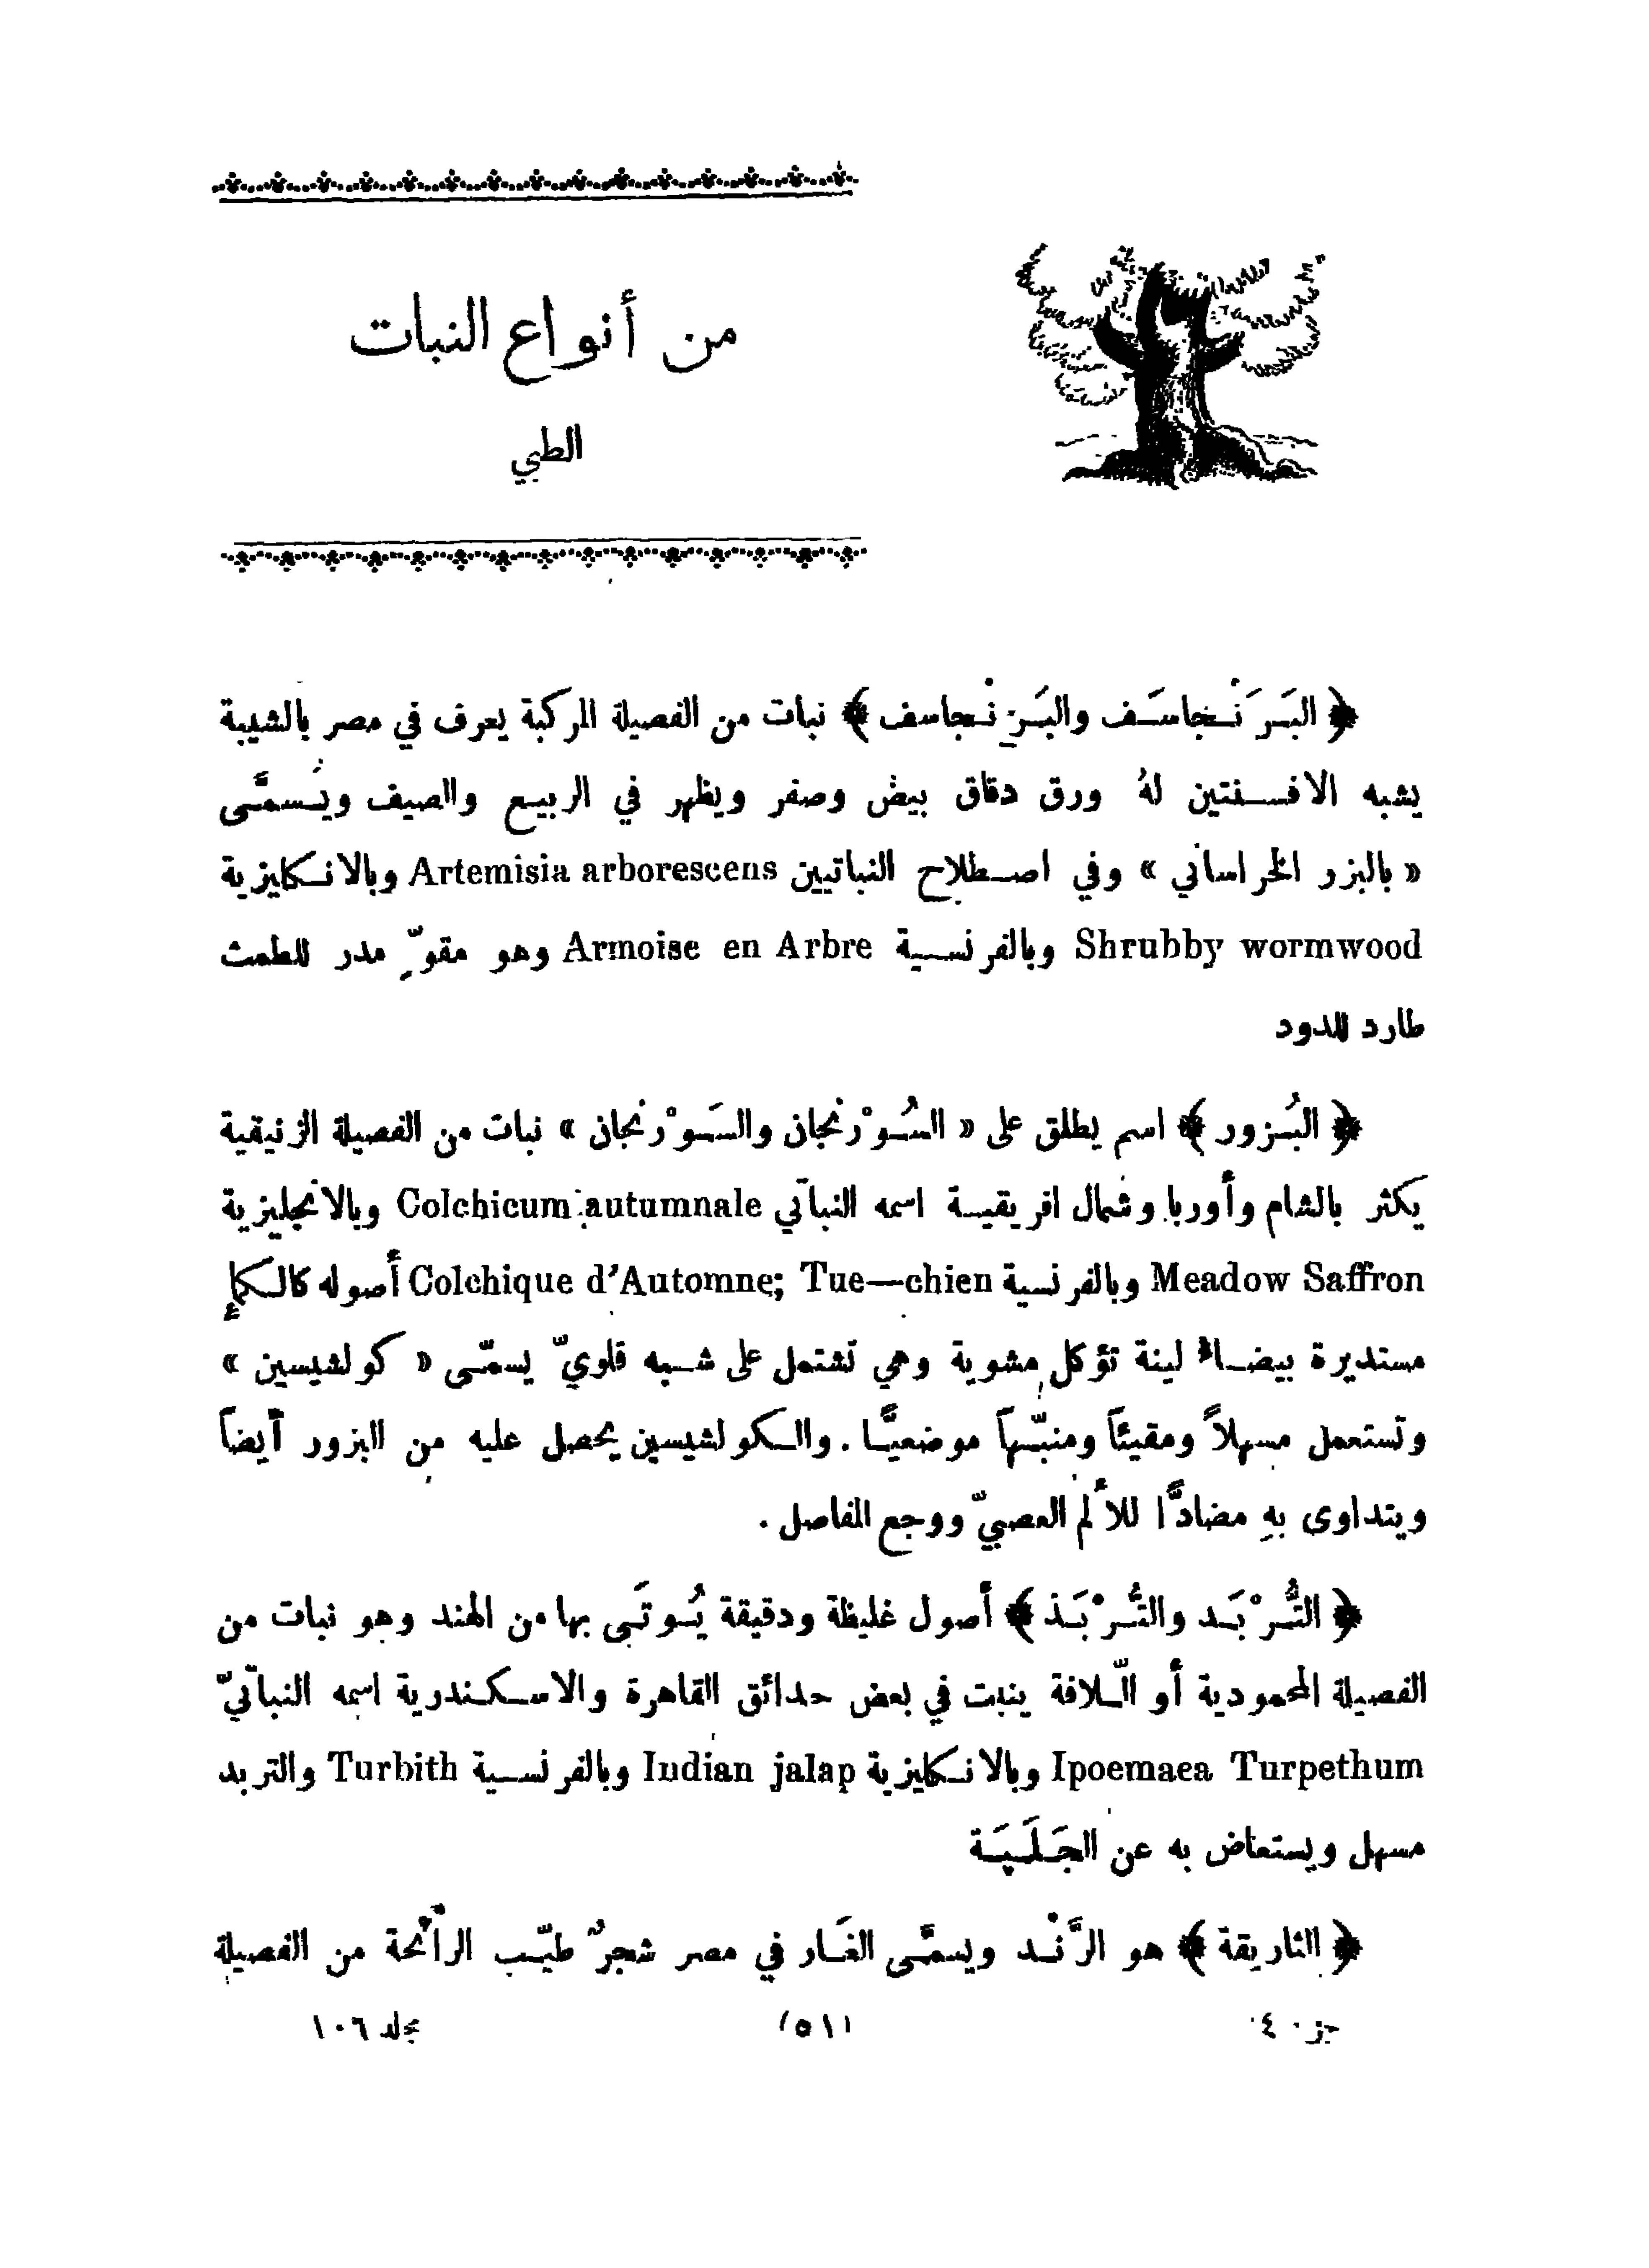 من أنواع النبات
الطبي
﴿ البَرَنْجاسَف والبَرِنْجاسف ﴾ نبات من الفصيلة المركبة يعرف في مصر بالشيبة
يشبه الافسنتين لهُ ورق دقاق بيض وصفر ويظهر في الربيع والصيف ويُسمَّى
« بالبزر الخراساني » وفي اصطلاح النباتيين Artemisia arborescens وبالانكليزية
Shrubby wormwood وبالفرنسية Armoise en Arbre وهو مقوٍّ مدر للطمث
طارد للدود
﴿ البُزور ﴾ اسم يطلق على « السُوْرنجان والسَوْرنجان » نبات من الفصيلة الزنيقية
يكثر بالشام وأوربا وشمال افريقية اسمه النباتي Colchicum autumnale وبالانجليزية
Meadow Saffron وبالفرنسية Colchique d'Automne; Tue—chien أصوله كالكمإ
مستديرة بيضاء لينة تؤكل مشوية وهي تشتمل على شبه قلويّ يسمّى « كولشيسين »
وتستعمل مسهلاً ومقيئاً ومنبّهاً موضعيًّا . والكولشيسين يحصل عليه من البزور أيضاً
ويتداوى بهِ مضادًّا للألم العصبيّ ووجع المفاصل .
﴿ التُّرْبَد والتُّرْبَذ ﴾ أصول غليظة ودقيقة يُوتَى بها من الهند وهو نبات من
الفصيلة المحمودية أو اللّلافة ينبت في بعض حدائق القاهرة والاسكندرية اسمه النباتيّ
Ipoemaea Turpethum وبالانكليزية Indian jalap وبالفرنسية Turbith والتربد
مسهل ويستعاض به عن الجَلَبَة
﴿ الثاريقة ﴾ هو الرَّنْد ويسمَّى الغَار في مصر شجرٌ طيّب الرائحة من الفصيلة
جزء ٤ (٥١) مجلد ١٠٦